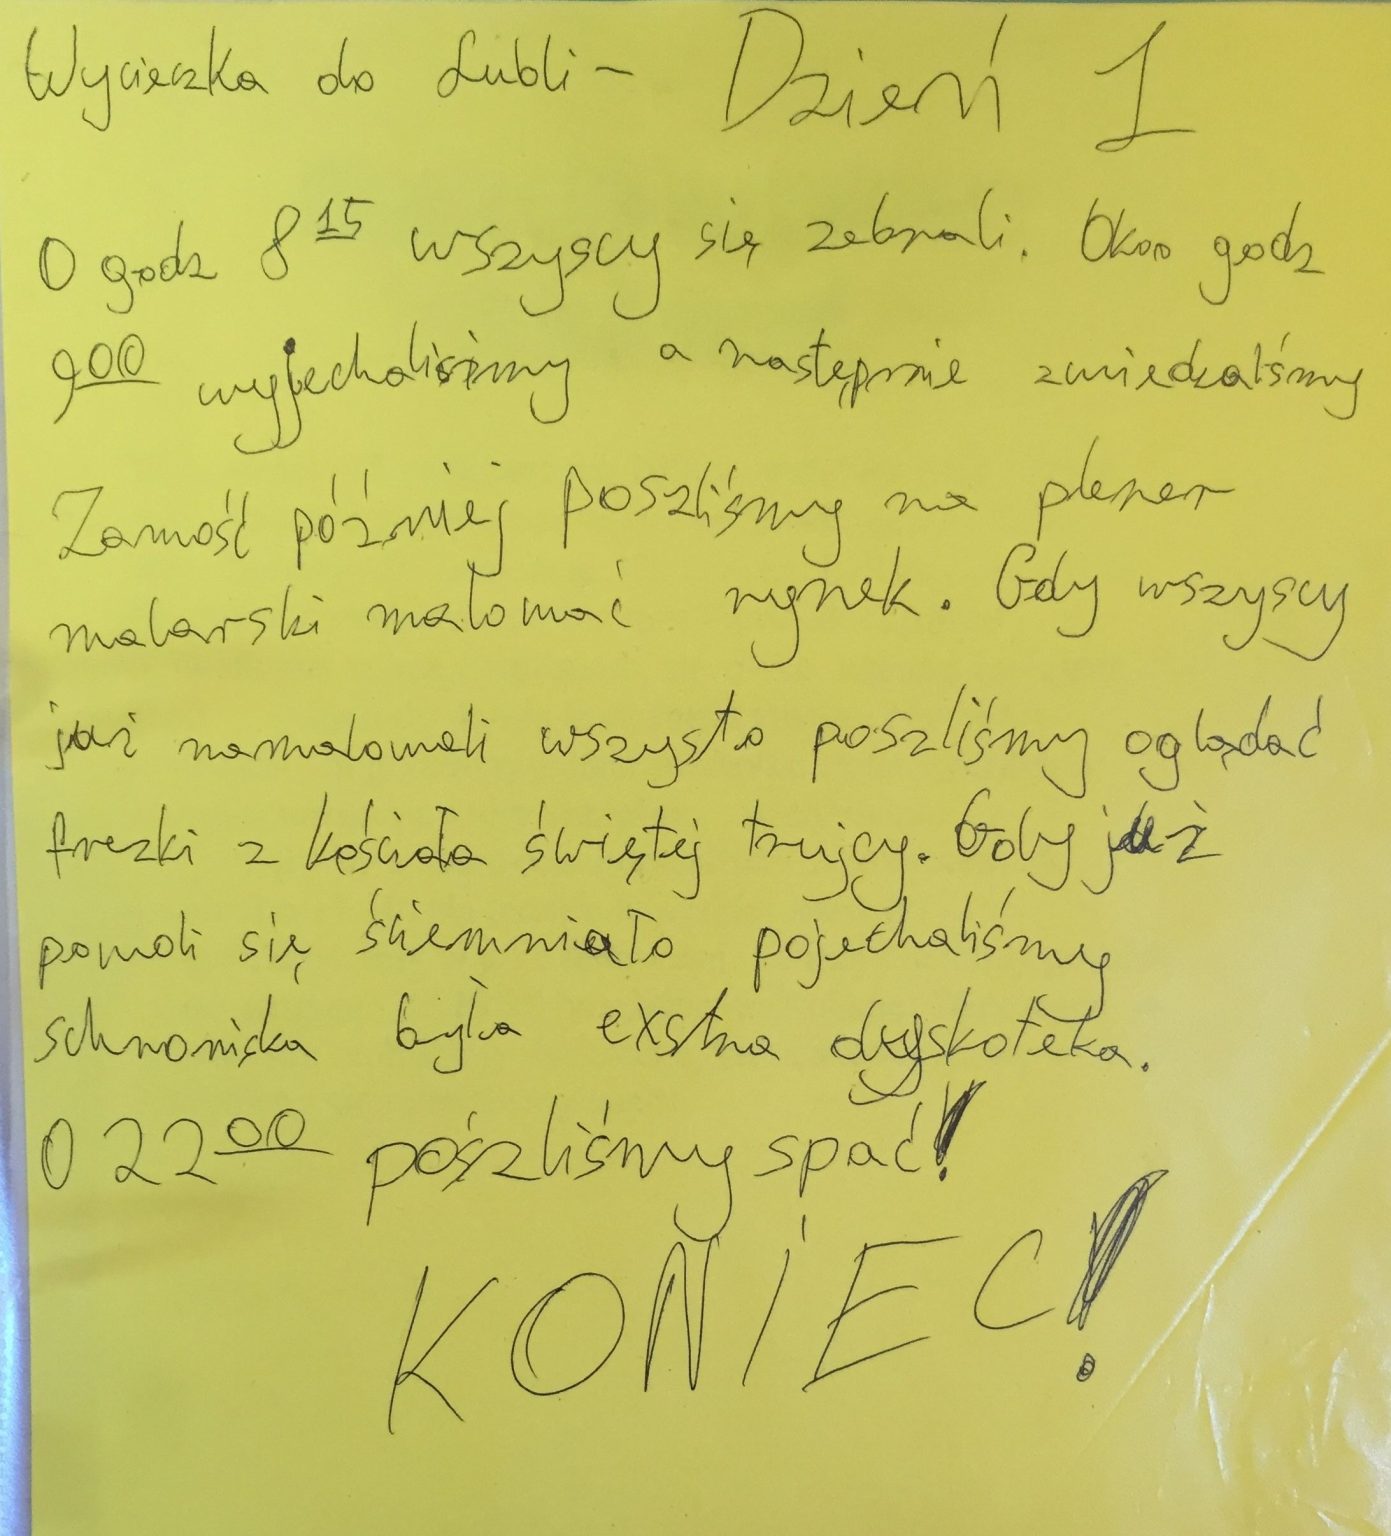 Wycieczka do Lubli – Dzień 1
O godz 8 15 wszyscy się zebrali. Okoo godz
9 00 wyjechaliśmy a następnie zwiedzaliśmy
Zamość później poszliśmy na plener
malarski malować rynek. Gdy wszyscy
już namalowali wszysto poszliśmy oglądać
frezki z kościała świętej trujcy. Gdy już
pomoli się ściemniało pojechaliśmy
schroniska była exstra dyskoteka.
O 22 00 poszliśmy spać!
KONIEC!